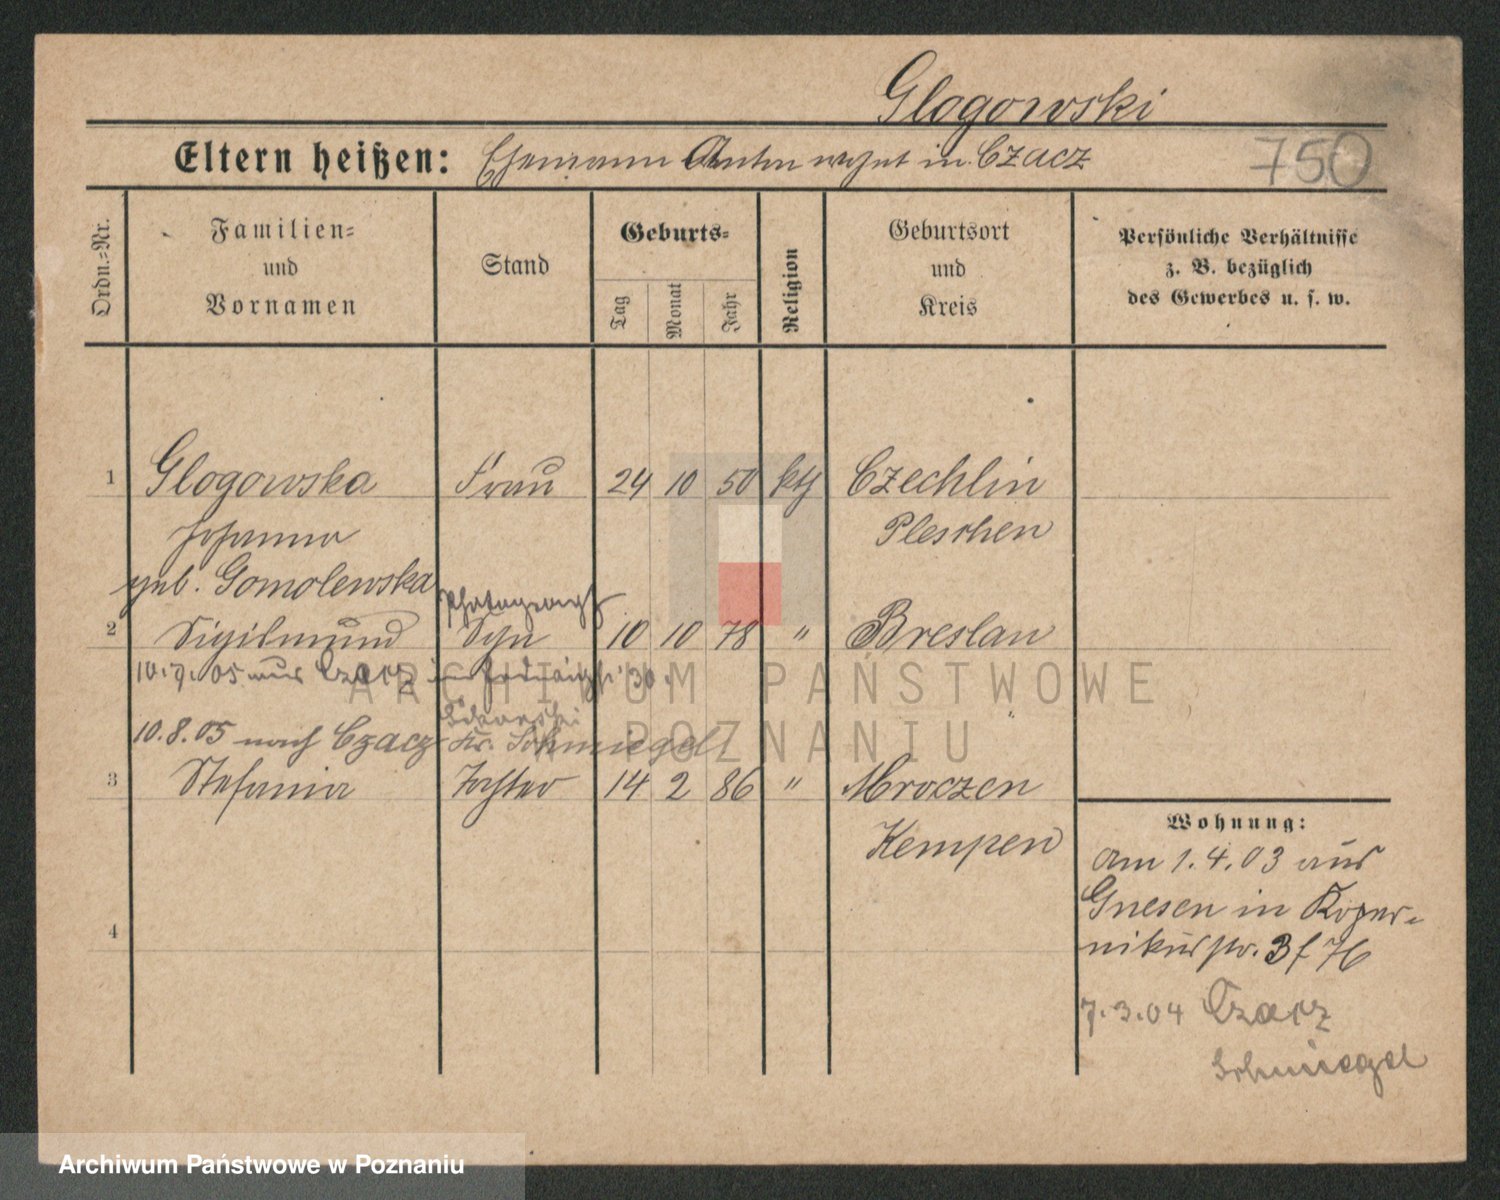 Glogowski
Eltern heißen: Ehemann Anton wohnt in Czacz 750
Ordn.-Nr.
Familien-
und
Vornamen
Stand
Geburts-
Tag
Monat
Jahr
Religion
Geburtsort
und
Kreis
Persönliche Verhältnisse
z. B. bezüglich
des Gewerbes u. s. w.
1 Glogowska Frau 24 10 50 kth Czechlin
Johanna Pleschen
geb. Gomolewska
Photograph
2 Sigismund Sohn 10 10 78 " Breslau
10.7.05 aus Czacz 30.
10.8.05 nach Czacz Kr. Schmiegel
3 Stefania Tochter 14 2 86 " Mroczen
Kempen
4
Wohnung:
am 1.4.03 aus
Gnesen in Koper-
nikusstr. 3 f 76
7.3.04 Czacz
Schmiegel
ARCHIWUM PAŃSTWOWE
W POZNANIU
Archiwum Państwowe w Poznaniu